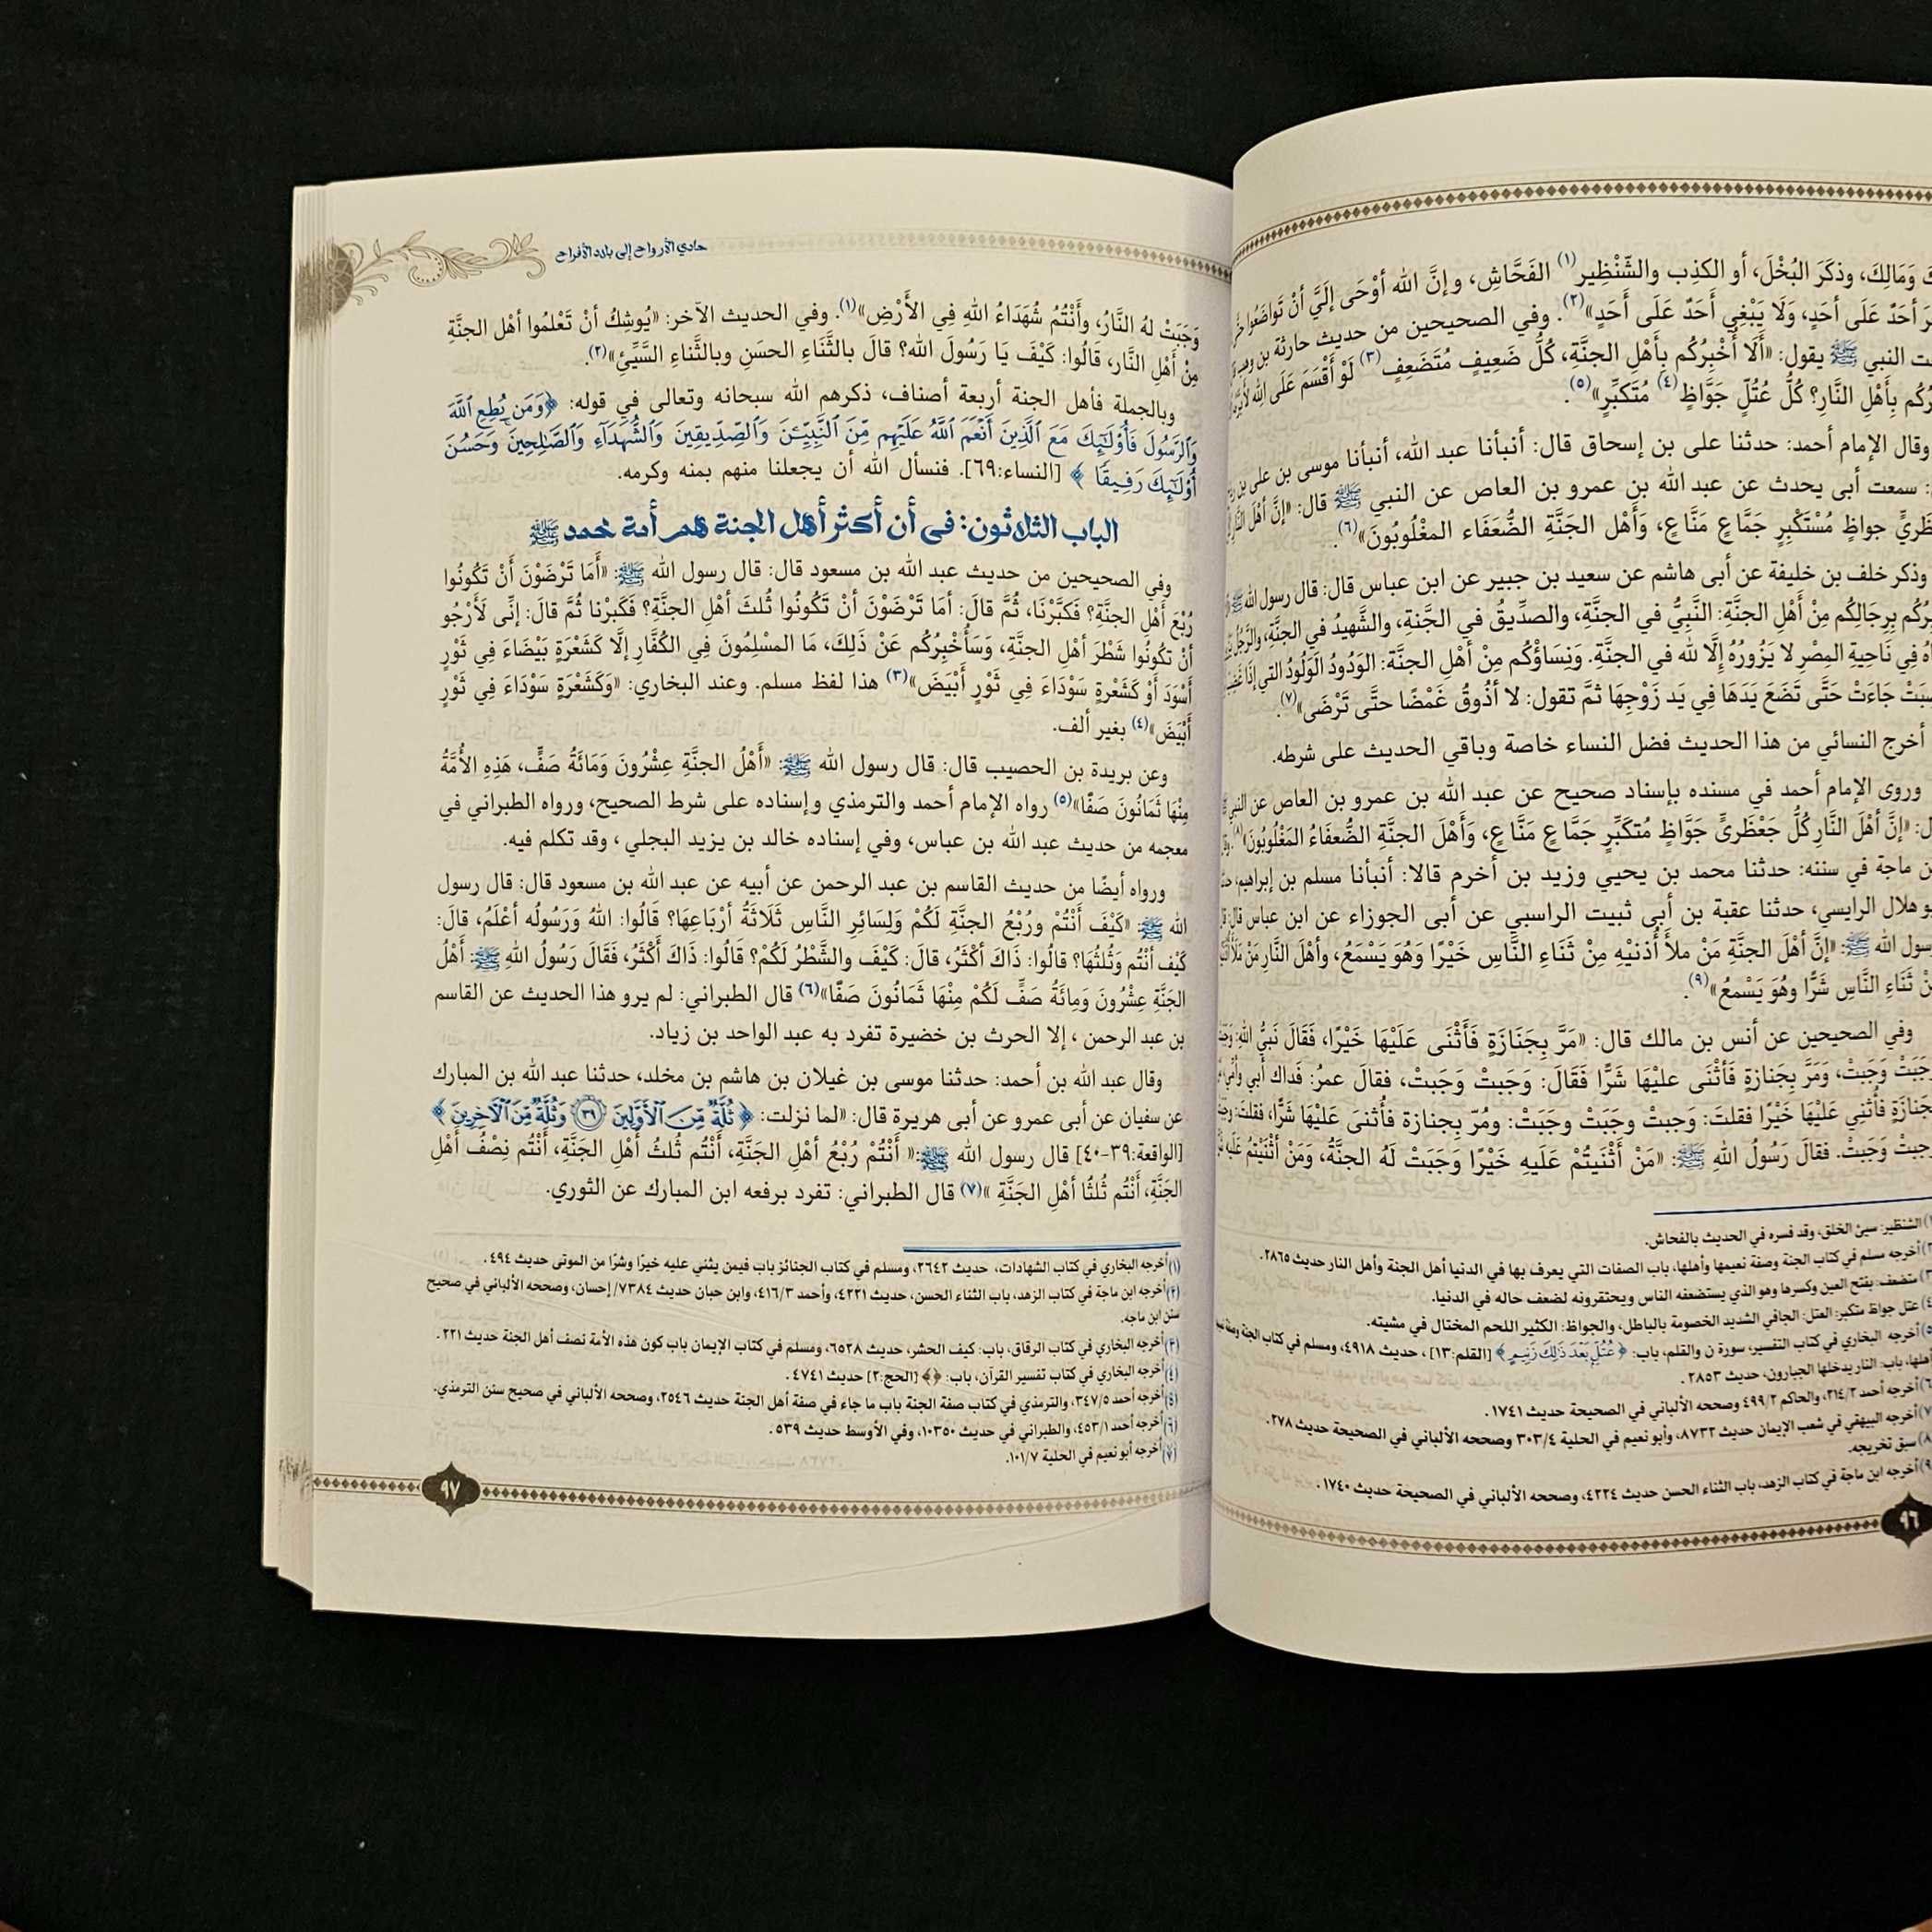 وَمَالِكَ، وذكَرَ البُخْلَ، أو الكذِب والشِّنْظِير(١) الفَحَّاشِ، وإنَّ الله أوْحَى إلَيَّ أنْ تَوَاضَعُوا
أحَدٌ عَلَى أحَدٍ، وَلَا يَبْغِي أحَدٌ عَلَى أَحَدٍ»(٢). وفي الصحيحين من حديث حارثة بن وهب
النبي ﷺ يقول: «أَلَا أُخْبِرُكُم بِأَهْلِ الجنَّةِ، كُلُّ ضَعِيفٍ مُتَضَعِفٍ(٣) لَوْ أَقْسَمَ عَلَى اللهِ
بِأَهْلِ النَّارِ؟ كُلُّ عُتُلّ جَوَّاظٍ(٤) مُتَكَبِّرٍ»(٥).
وقال الإمام أحمد: حدثنا على بن إسحاق قال: أنبأنا عبد الله، أنبأنا موسى بن على بن
سمعت أبى يحدث عن عبد الله بن عمرو بن العاص عن النبي ﷺ قال: «إنَّ أَهْلَ
جواظٍ مُسْتَكْبِرٍ جَمَّاعٍ مَنَّاعٍ، وَأَهْل الجَنَّةِ الضُّعَفَاء المغْلُوبُونَ»(٦).
وذكر خلف بن خليفة عن أبى هاشم عن سعيد بن جبير عن ابن عباس قال: قال رسول الله
بِرِجَالِكُم مِنْ أَهْلِ الجنَّةِ: النَّبِيُّ في الجنَّةِ، والصدِّيقُ في الجَّنةِ، والشَّهِيدُ في الجنَّةِ،
فِي نَاحِيةِ المِصْرِ لا يَزُورُهُ إلَّا لله في الجنَّةِ. وَنِسَاؤُكُم مِنْ أَهْلِ الجنَّة: الوَدُودُ الوَلُودُ التي إذَا
جَاءَتْ حَتَّى تَضَعَ يَدَهَا فِي يَد زَوْجِهَا ثمَّ تقول: لا أذُوقُ غَمْضًا حتَّى تَرْضَى»(٧).
أخرج النسائي من هذا الحديث فضل النساء خاصة وباقي الحديث على شرطه.
وروى الإمام أحمد في مسنده بإسناد صحيح عن عبد الله بن عمرو بن العاص عن النبي
«إنَّ أَهْلَ النَّارِ كُلُّ جَعْظَرىٍّ جَوَّاظٍ مُتكَبِّرٍ جَمَّاعٍ مَنَّاعٍ، وَأَهْلَ الجنَّةِ الضُّعفَاءُ المَغْلُوبُونَ»(٨).
ماجة في سننه: حدثنا محمد بن يحيي وزيد بن أخرم قالا: أنبأنا مسلم بن إبراهيم،
هلال الرايسي، حدثنا عقبة بن أبى ثبيت الراسبي عن أبى الجوزاء عن ابن عباس قال:
الله ﷺ: «إنَّ أَهْلَ الجنَّةِ مَنْ ملأَ أُذنيْهِ مِنْ ثَنَاءِ النَّاسِ خَيْرًا وَهُوَ يَسْمَعُ، وأهْلَ النَّارِ مَنْ
ثَنَاءِ النَّاسِ شَرًّا وهُوَ يَسْمعُ»(٩).
وفي الصحيحين عن أنس بن مالك قال: «مَرَّ بِجَنَازَةٍ فَأَثْنَى عَلَيْهَا خَيْرًا، فَقَالَ نَبيُّ اللهِ:
وَجَبَتْ، وَمَرَّ بِجنازةٍ فأثْنَى عليْهَا شَرًّا فَقَالَ: وَجَبَتْ وَجَبتْ، فقالَ عمرُ: فَداك أبي وأمِّي،
فأُثْنِي عَلَيْهَا خَيْرًا فقلتَ: وَجبتْ وَجَبَتْ وجَبَتْ: ومُرّ بِجنازة فأُثنىَ عَلَيْهَا شَرًّا، فقلتَ:
وَجَبَتْ. فقَالَ رَسُولُ اللهِ ﷺ: «مَنْ أَثْنَيتُمْ عَلَيهِ خَيْرًا وَجَبَتْ لَهُ الجنَّةُ، وَمَنْ أثْنَيْتُمْ عَلَيهِ
الشنظير: سيئ الخلق، وقد فسره في الحديث بالفحاش.
أخرجه مسلم في كتاب الجنة وصفة نعيمها وأهلها، باب الصفات التي يعرف بها في الدنيا أهل الجنة وأهل النار حديث ٢٨٦٥.
متضعف: بفتح العين وكسرها وهو الذي يستضعفه الناس ويحتقرونه لضعف حاله في الدنيا.
عتل جواظ متكبر: العتل: الجافي الشديد الخصومة بالباطل، والجواظ: الكثير اللحم المختال في مشيته.
أخرجه البخاري في كتاب التفسير، سورة ن والقلم، باب: ﴿عُتُلٍّ بَعْدَ ذَٰلِكَ زَنِيمٍ﴾ [القلم:١٣]، حديث ٤٩١٨، ومسلم في كتاب الجنة وصفة
أهلها، باب: النار يدخلها الجبارون، حديث ٢٨٥٣.
أخرجه أحمد ٢١٤/٢، والحاكم ٤٩٩/٢ وصححه الألباني في الصحيحة حديث ١٧٤١.
أخرجه البيهقي في شعب الإيمان حديث ٨٧٣٢، وأبو نعيم في الحلية ٣٠٣/٤ وصححه الألباني في الصحيحة حديث ٢٧٨.
سبق تخريجه.
أخرجه ابن ماجة في كتاب الزهد، باب الثناء الحسن حديث ٤٢٢٤، وصححه الألباني في الصحيحة حديث ١٧٤٠.
٩٦
حادي الأرواح إلى بلاد الأفراح
وَجَبَتْ لهُ النَّارُ، وأَنْتُمْ شُهَدَاءُ اللهِ فِي الأَرْضِ»(١). وفي الحديث الآخر: «يُوشِكُ أنْ تَعْلمُوا أهْل الجنَّةِ
مِنْ أهْلِ النَّار، قَالُوا: كَيْفَ يَا رَسُولَ الله؟ قالَ بالثَّنَاءِ الحسَنِ وبالثَّناءِ السَّيِّئِ»(٢).
وبالجملة فأهل الجنة أربعة أصناف، ذكرهم الله سبحانه وتعالى في قوله: ﴿وَمَن يُطِعِ ٱللَّهَ
وَٱلرَّسُولَ فَأُو۟لَٰٓئِكَ مَعَ ٱلَّذِينَ أَنْعَمَ ٱللَّهُ عَلَيْهِم مِّنَ ٱلنَّبِيِّـۧنَ وَٱلصِّدِّيقِينَ وَٱلشُّهَدَآءِ وَٱلصَّٰلِحِينَ ۚ وَحَسُنَ
أُو۟لَٰٓئِكَ رَفِيقًا ﴾ [النساء:٦٩]. فنسأل الله أن يجعلنا منهم بمنه وكرمه.
الباب الثلاثون: في أن أكثر أهل الجنة هم أمة محمد ﷺ
وفي الصحيحين من حديث عبد الله بن مسعود قال: قال رسول الله ﷺ: «أَمَا تَرْضَوْنَ أَنْ تَكُونُوا
رُبْعَ أَهْلِ الجنَّةِ؟ فَكَبَّرْنَا، ثُمَّ قالَ: أمَا تَرْضَوْنَ أنْ تَكُونُوا ثُلثَ أهْلِ الجنَّةِ؟ فَكَبَرْنا ثُمَّ قالَ: إنِّى لَأَرْجُو
أنْ تكُونُوا شَطْرَ أهْلِ الجنَّةِ، وَسَأُخْبِرُكُم عَنْ ذَلِكَ، مَا المسْلِمُونَ فِي الكُفَّارِ إلَّا كَشَعْرَةٍ بَيْضَاءَ فِي ثَوْرٍ
أسْوَدَ أوْ كَشَعْرةٍ سَوْدَاءَ فِي ثَوْرٍ أَبْيَضَ»(٣) هذا لفظ مسلم. وعند البخاري: «وَكَشَعْرَةٍ سَوْدَاءَ فِي ثَوْرٍ
أَبْيَضَ»(٤) بغير ألف.
وعن بريدة بن الحصيب قال: قال رسول الله ﷺ: «أَهْلُ الجنَّةِ عِشْرُونَ وَمَائَةُ صَفٍّ، هَذِهِ الأُمَّةُ
مِنْهَا ثَمَانُونَ صَفًّا»(٥) رواه الإمام أحمد والترمذي وإسناده على شرط الصحيح، ورواه الطبراني في
معجمه من حديث عبد الله بن عباس، وفي إسناده خالد بن يزيد البجلي، وقد تكلم فيه.
ورواه أيضًا من حديث القاسم بن عبد الرحمن عن أبيه عن عبد الله بن مسعود قال: قال رسول
الله ﷺ: «كَيْفَ أَنْتُمْ ورُبْعُ الجنَّةِ لَكُمْ وَلِسَائِرِ النَّاسِ ثَلَاثَةُ أرْبَاعِهَا؟ قَالُوا: اللهُ وَرَسُولُه أعْلَمُ، قَالَ:
كَيْف أنْتُم وَثُلثُهَا؟ قالُوا: ذَاكَ أكْثَرُ، قالَ: كَيْفَ والشَّطْرُ لَكُمْ؟ قَالُوا: ذَاكَ أَكْثَرُ، فَقَالَ رَسُولُ اللهِ ﷺ: أَهْلُ
الجَنَّةِ عِشْرُونَ وَمِائَةُ صَفٍّ لَكُمْ مِنْهَا ثَمَانُونَ صَفًّا»(٦) قال الطبراني: لم يرو هذا الحديث عن القاسم
بن عبد الرحمن، إلا الحرث بن خضيرة تفرد به عبد الواحد بن زياد.
وقال عبد الله بن أحمد: حدثنا موسى بن غيلان بن هاشم بن مخلد، حدثنا عبد الله بن المبارك
عن سفيان عن أبى عمرو عن أبى هريرة قال: «لما نزلت: ﴿ثُلَّةٌ مِّنَ ٱلْأَوَّلِينَ ٣٩ وَثُلَّةٌ مِّنَ ٱلْءَاخِرِينَ﴾
[الواقعة:٣٩-٤٠] قال رسول الله ﷺ: « أَنْتُمْ رُبْعُ أهْلِ الجَنَّةِ، أَنْتُم ثُلثُ أَهْلِ الجَنَّةِ، أَنْتُم نِصْفُ أَهْلِ
الجَنَّةِ، أَنْتُم ثُلثَا أَهْلِ الجَنَّةِ »(٧) قال الطبراني: تفرد برفعه ابن المبارك عن الثوري.
(١) أخرجه البخاري في كتاب الشهادات، حديث ٢٦٤٢، ومسلم في كتاب الجنائز باب فيمن يثني عليه خيرًا وشرًا من الموتى حديث ٤٩٤.
(٢) أخرجه ابن ماجة في كتاب الزهد، باب الثناء الحسن، حديث ٤٢٢١، وأحمد ٤١٦/٣، وابن حبان حديث ٧٣٨٤/ إحسان، وصححه الألباني في صحيح
سنن ابن ماجه.
(٣) أخرجه البخاري في كتاب الرقاق، باب: كيف الحشر، حديث ٦٥٢٨، ومسلم في كتاب الإيمان باب كون هذه الأمة نصف أهل الجنة حديث ٢٢١.
(٤) أخرجه البخاري في كتاب تفسير القرآن، باب: ﴿﴾ [الحج:٢] حديث ٤٧٤١.
(٥) أخرجه أحمد ٣٤٧/٥، والترمذي في كتاب صفة الجنة باب ما جاء في صفة أهل الجنة حديث ٢٥٤٦، وصححه الألباني في صحيح سنن الترمذي.
(٦) أخرجه أحمد ٤٥٣/١، والطبراني في حديث ١٠٣٥٠، وفي الأوسط حديث ٥٣٩.
(٧) أخرجه أبو نعيم في الحلية ١٠١/٧.
٩٧